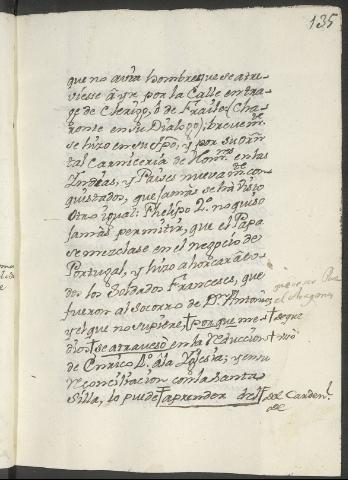 135
que no avia hombre que se atre-
viesse â yr por la Calle en tra-
ge de Clerigo, ô de Fraile (Cha-
ronte en su Dialogo); brevem.te
se hizo en su espo, y por su orn
tal Carniceria de Hom.s en las
Yndias, y Paises nuevam.te con-
quistados, que jamàs se hà visto
otra igual: Phelipo 2.º no quiso
jamàs permitir, que el Papa
se mezclase en el negocio de
Portugal, y hizo ahorcar â to-
dos los Soldados Franceses, que
fueron al Socorro de D.n Antonio,
y el que no supiere, porque me-
dios se atravesò en la reduccion
de Enrico 4.º â la Yglesia; y en su
reconciliacion con la Santa
Silla, lo puede aprender del
el Aragon
segue
del Carden.l